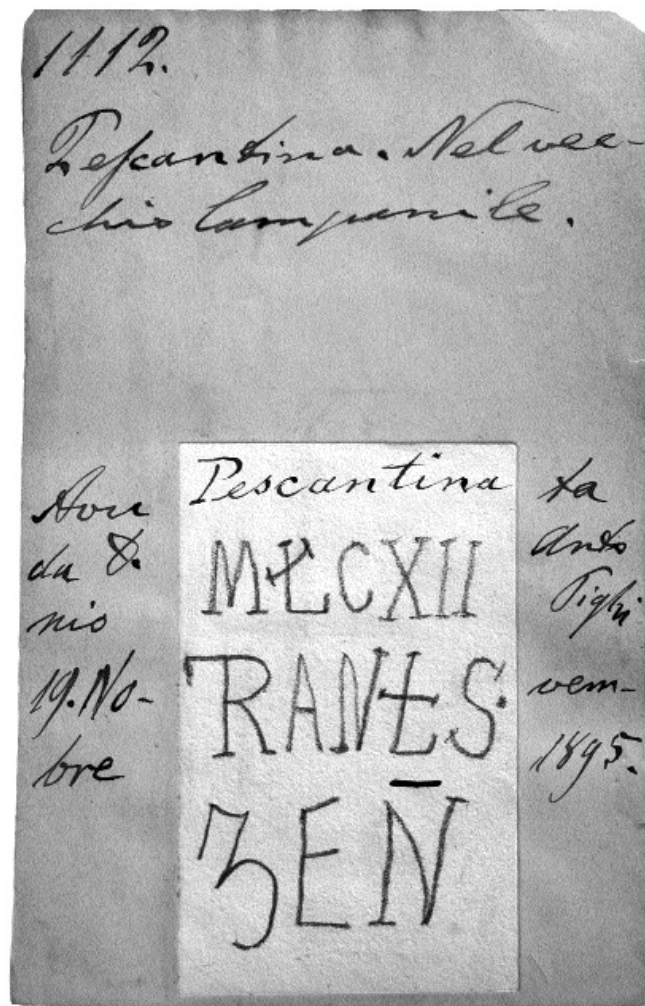 1112.
Pescantina. Nel vec-
chio Campanile.
Pescantina
MŁCXII
TRANŁS.
ZEN
Avu ta
da D. Anto
nio Pighi
19. No- vem-
bre 1895.